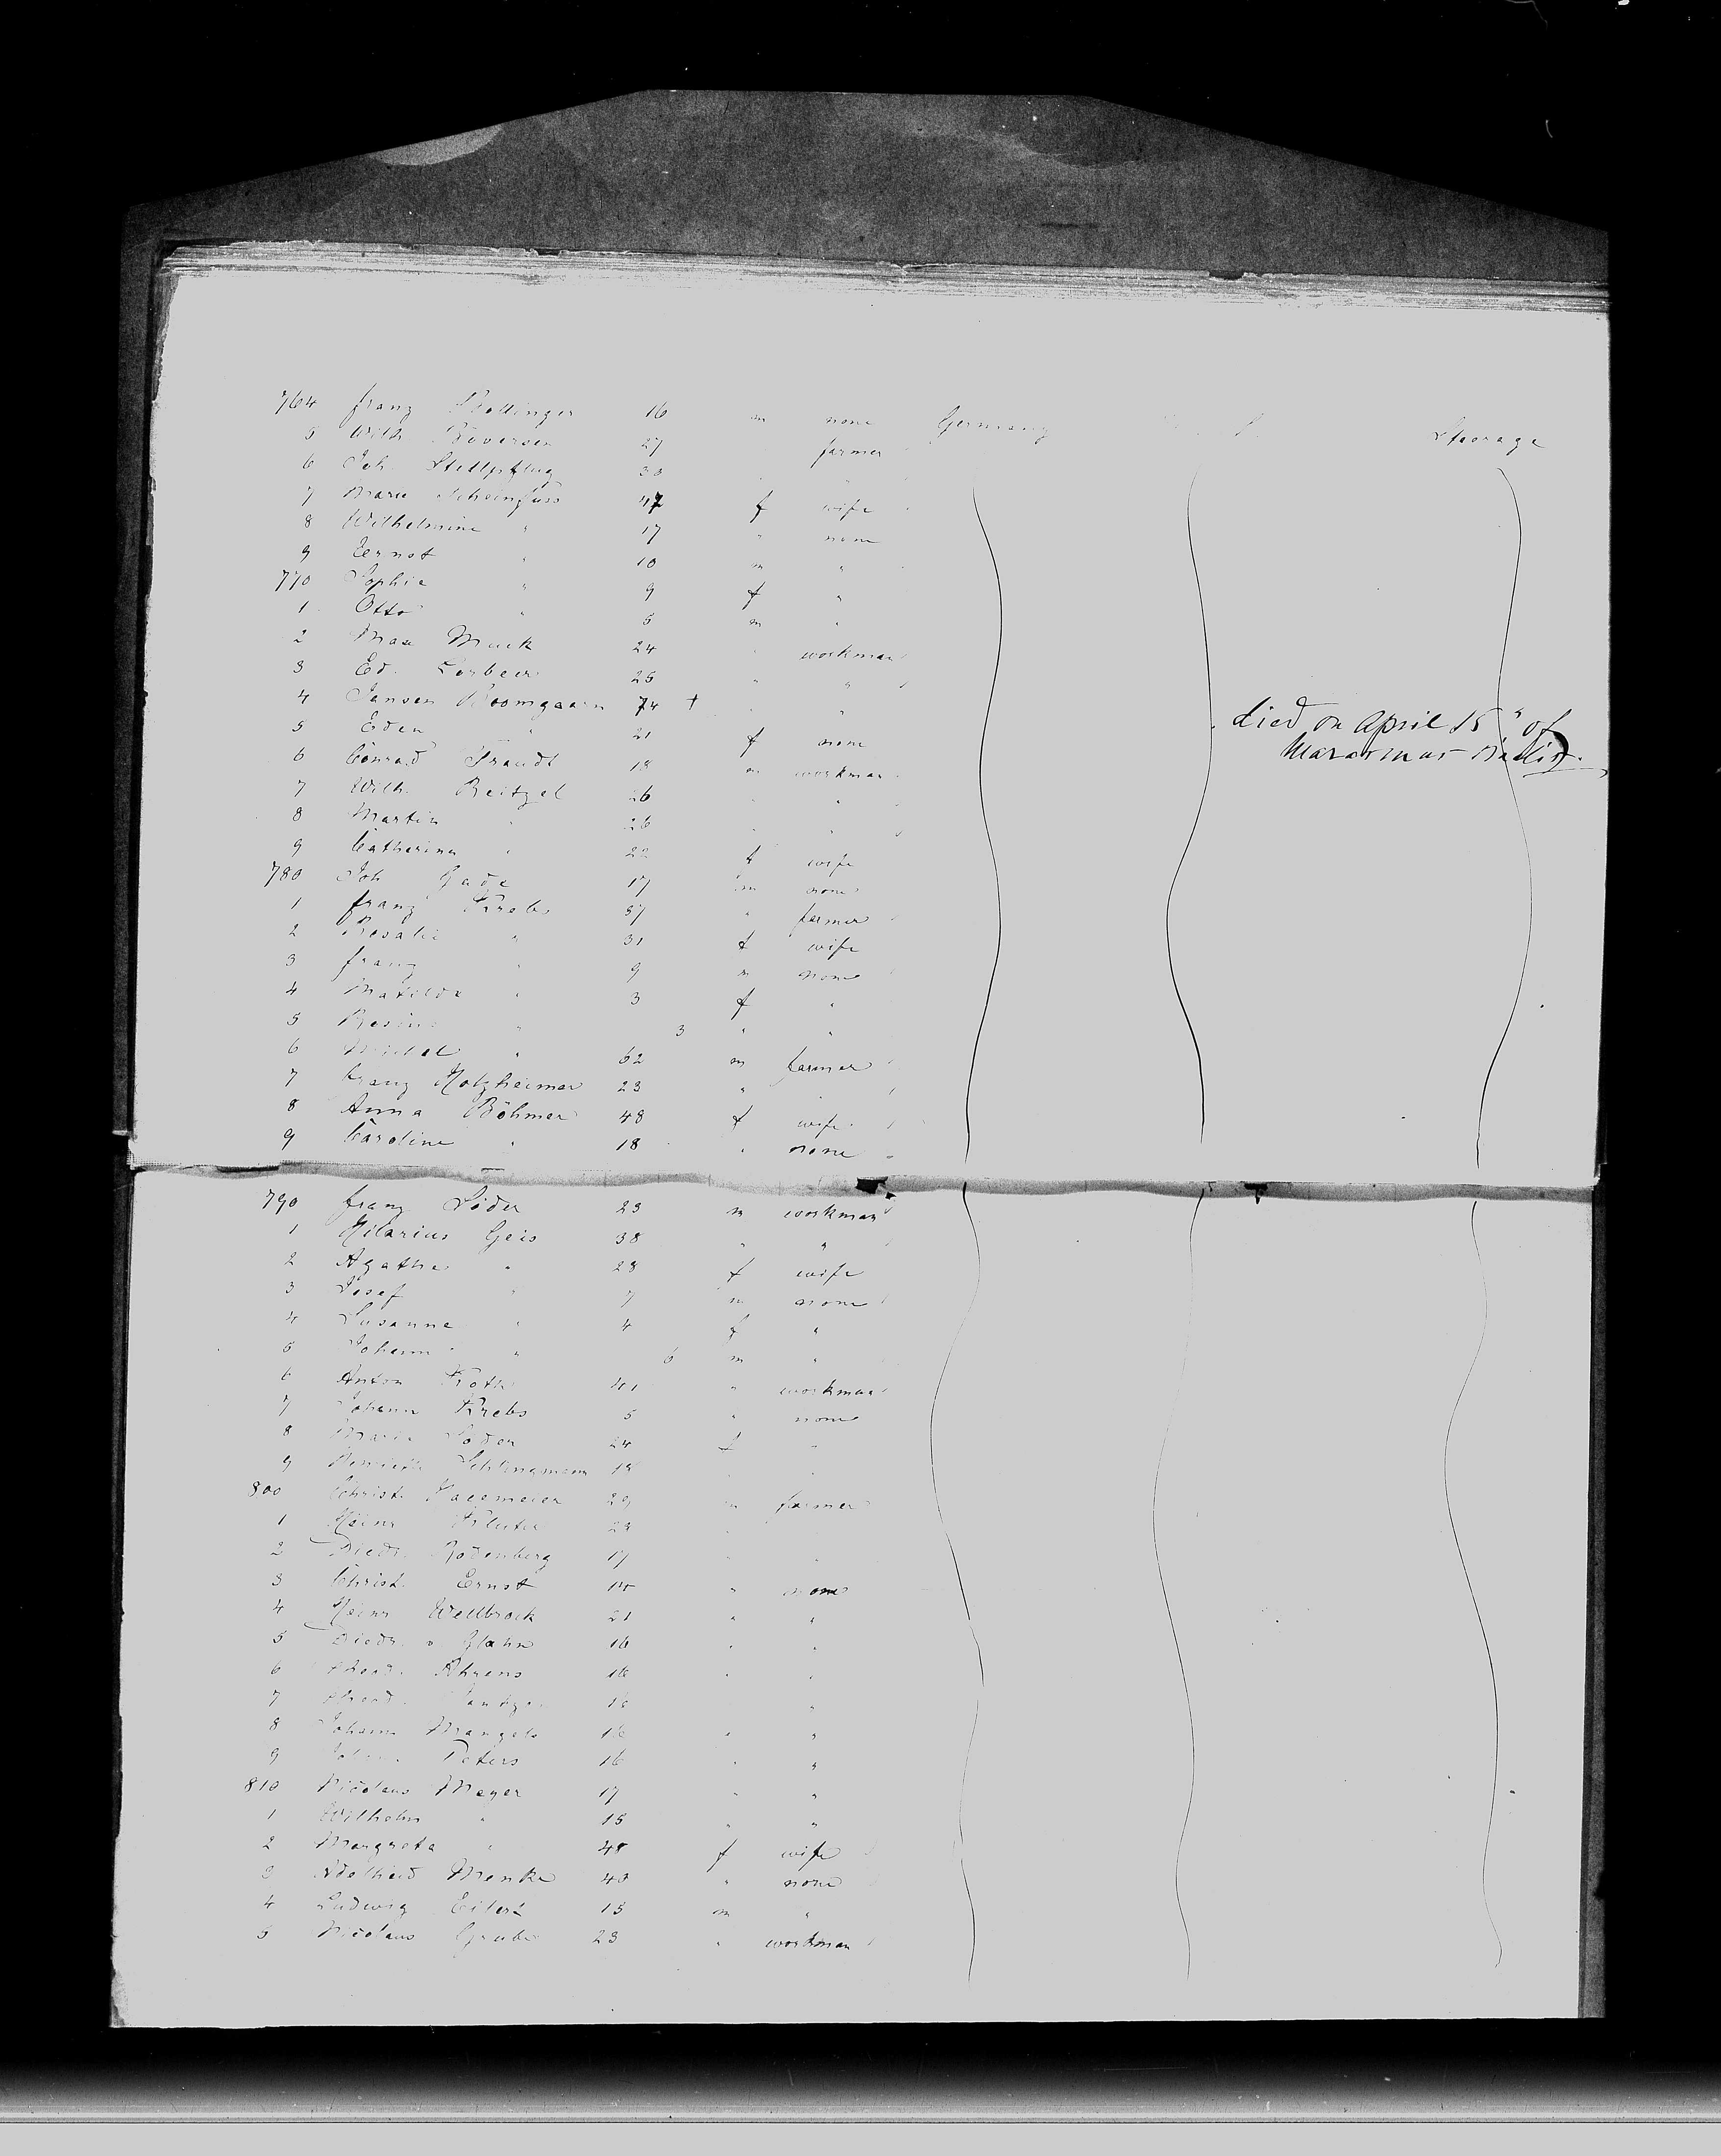 764 Franz Bollinger 16 m none Germany Steerage
5 Wilh. Boversen 27 farmer
6 Joh. Stellpflug 30 "
7 Marie Scheinfuss 47 f wife
8 Wilhelmine " 17 " none
9 Ernst " 10 m "
770 Sophie " 9 f "
1 Otto " 5 m "
2 Max Muck 24 " workman
3 Ed. Lorbeer 25 " "
4 Jansen Boomgaarn 74 + " " died on April 15 " of
Marasmus
5 Eden " 21 f none
6 Conrad Traudt 18 m workman
7 Wilh. Beitzel 26 " "
8 Martin " 26 " "
9 Catharina " 22 f wife
780 Joh Gade 17 m none
1 Franz Krebs 37 " farmer
2 Rosalie " 31 f wife
3 Franz " 9 m none
4 Matilda " 3 f "
5 Rosina " 3 " "
6 Michel " 62 m farmer
7 Franz Holzheimer 23 " "
8 Anna Böhmer 48 f wife
9 Caroline " 18 " none
790 Franz Söder 23 m workman
1 Hilarius Geis 38 " "
2 Agathe " 28 f wife
3 Josef " 7 m none
4 Susanne " 4 f "
5 Johann " 6 m "
6 Anton Roth 41 " workman
7 Johann Krebs 5 " none
8 Maria Soder 24 f "
9 Henriette Schlingmann 18 " "
800 Christ. 29 m farmer
1 Heinr 23 "
2 Diedr. Rodenberg 17 " "
3 Christ. Ernst 14 " none
4 Heinr Wellbrock 21 " "
5 Diedr. v. Glahn 16 " "
6 Ahrens 16 " "
7 16 "
8 Johann Mangels 16 " "
9 Peters 16 " "
810 Nicolaus Meyer 17 " "
1 Wilhelm " 15 " "
2 Margreta " 48 f wife
3 Adelheid Menke 40 " none
4 Ludwig Eilert 15 m "
5 Nicolaus Grube 23 " workman